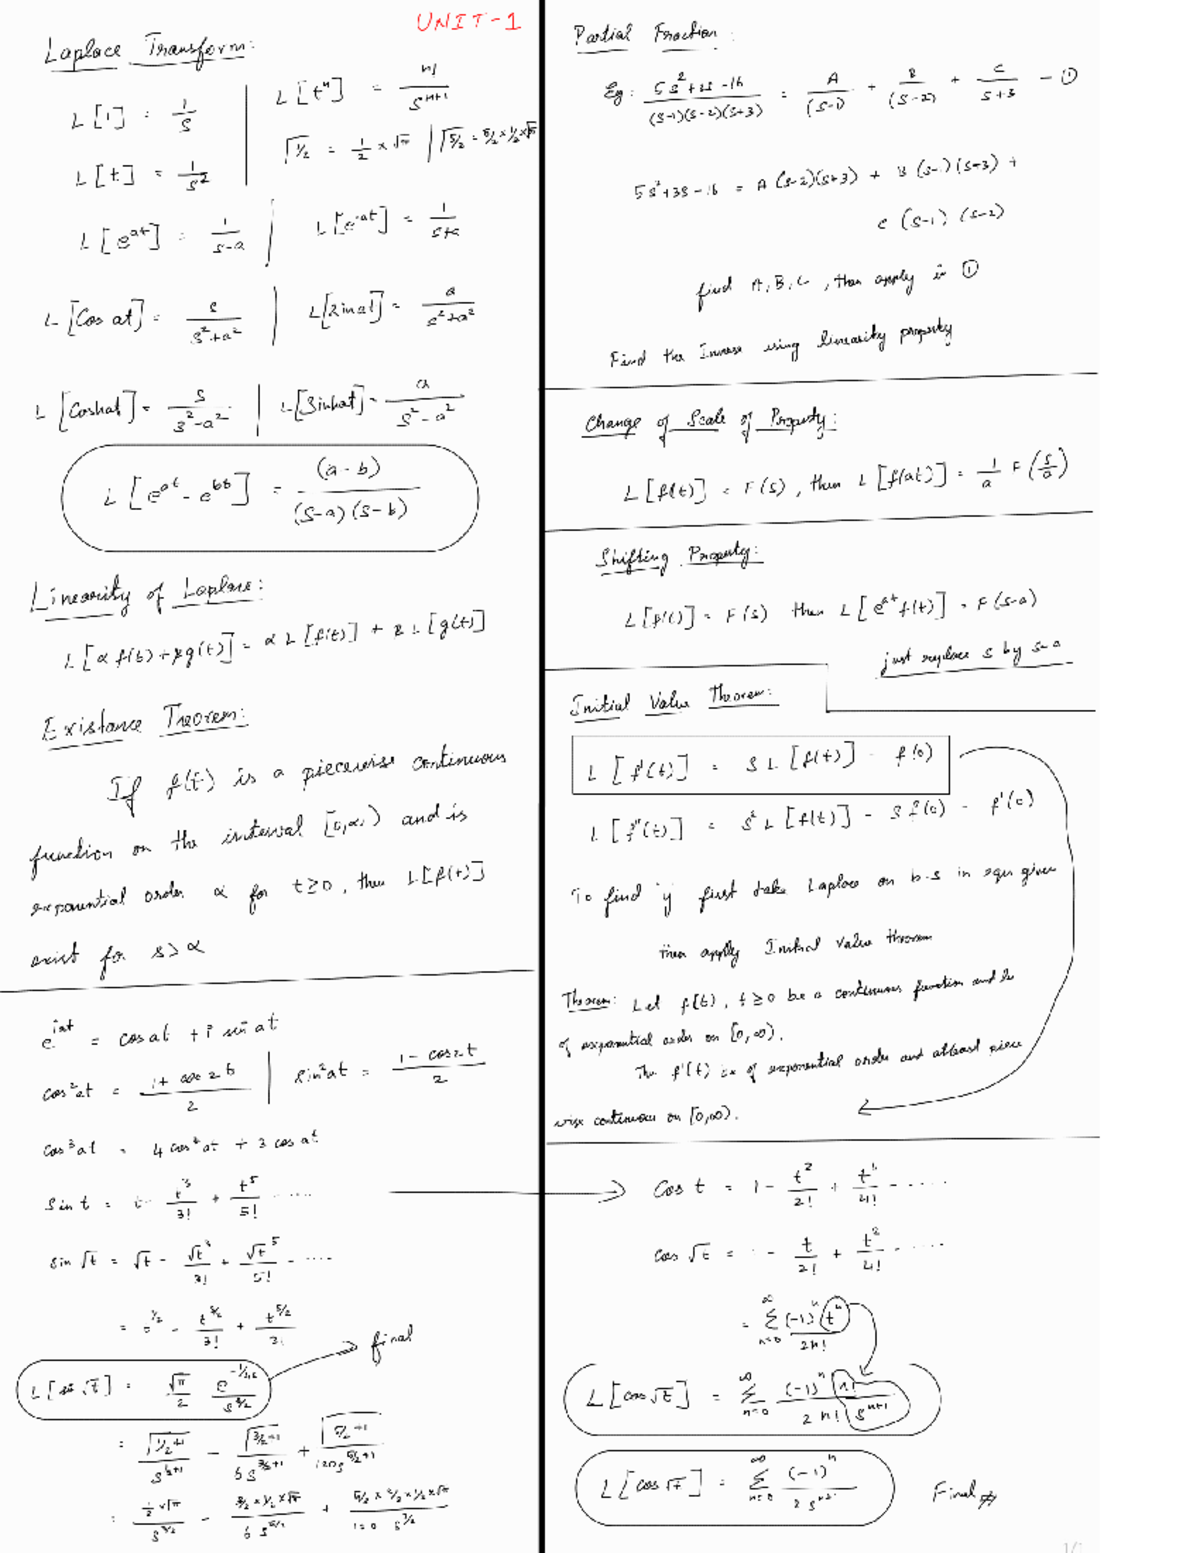 UNIT-1
Laplace Transform:
L[1] = 1/s | L[t^n] = n!/s^(n+1)
L[t] = 1/s^2 | Γ1/2 = 1/2 × √π | Γ5/2 = 5/2 × 1/2 × √π
L[e^(at)] = 1/(s-a) | L[e^(-at)] = 1/(s+a)
L[Cos at] = s/(s^2+a^2) | L[Sin at] = a/(s^2+a^2)
L[Coshat] = s/(s^2-a^2) | L[Sinhat] = a/(s^2-a^2)
L[e^(at) - e^(bt)] = (a-b)/((s-a)(s-b))
Linearity of Laplace:
L[α f(t) + β g(t)] = α L[f(t)] + β L[g(t)]
Existance Theorem:
If f(t) is a piecewise continuous
function on the interval [0,∞) and is
exponential order α for t≥0, then L[f(t)]
exist for s>α
e^(iat) = cos at + i sin at
cos^2 at = (1 + cos 2t)/2 | sin^2 at = (1 - cos 2t)/2
cos^3 at = 4 cos^2 at + 3 cos at
Sin t = t - t^3/3! + t^5/5! .....
Sin √t = √t - √t^3/3! + √t^5/5! - ....
= t^(1/2) - t^(3/2)/3! + t^(5/2)/3!
L[sin √t] = √π/2 e^(-1/4s)/s^(3/2) → final
= Γ(1/2+1)/s^(1/2+1) - Γ(3/2+1)/(6 s^(3/2+1)) + Γ(5/2+1)/(120 s^(5/2+1))
= (1/2 × √π)/s^(3/2) - (3/2 × 1/2 × √π)/(6 s^(5/2)) + (5/2 × 3/2 × 1/2 × √π)/(120 s^(7/2))
Partial Fraction:
Eg: (5s^2+3s-16)/((s-1)(s-2)(s+3)) = A/(s-1) + B/(s-2) + C/(s+3) - ①
5s^2+3s-16 = A(s-2)(s+3) + B(s-1)(s+3) +
C(s-1)(s-2)
find A,B,C, then apply in ①
Find the Inverse using linearity property
Change of Scale of Property:
L[f(t)] = F(s), then L[f(at)] = 1/a F(s/a)
Shifting Property:
L[f(t)] = F(s) then L[e^(at) f(t)] = F(s-a)
just replace s by s-a
Initial Value Theorem:
L[f'(t)] = S L[f(t)] - f(0)
L[f''(t)] = s^2 L[f(t)] - S f(0) - f'(0)
To find 'y' first take Laplace on b.s in eqn given
then apply Initial value theorem
Theorem: Let f(t), t≥0 be a continuous function and be
of exponential order on [0,∞).
The f'(t) is of exponential order and atleast piece
wise continuous on [0,∞).
Cos t = 1 - t^2/2! + t^4/4! - .....
Cos √t = - t/2! + t^2/4! - ....
= Σ(n=0 to ∞) (-1)^n t^n/2n!
L[cos √t] = Σ(n=0 to ∞) (-1)^n n!/(2n! s^(n+1))
L[cos √t] = Σ(n=0 to ∞) (-1)^n/(2 s^(n+1)) Final